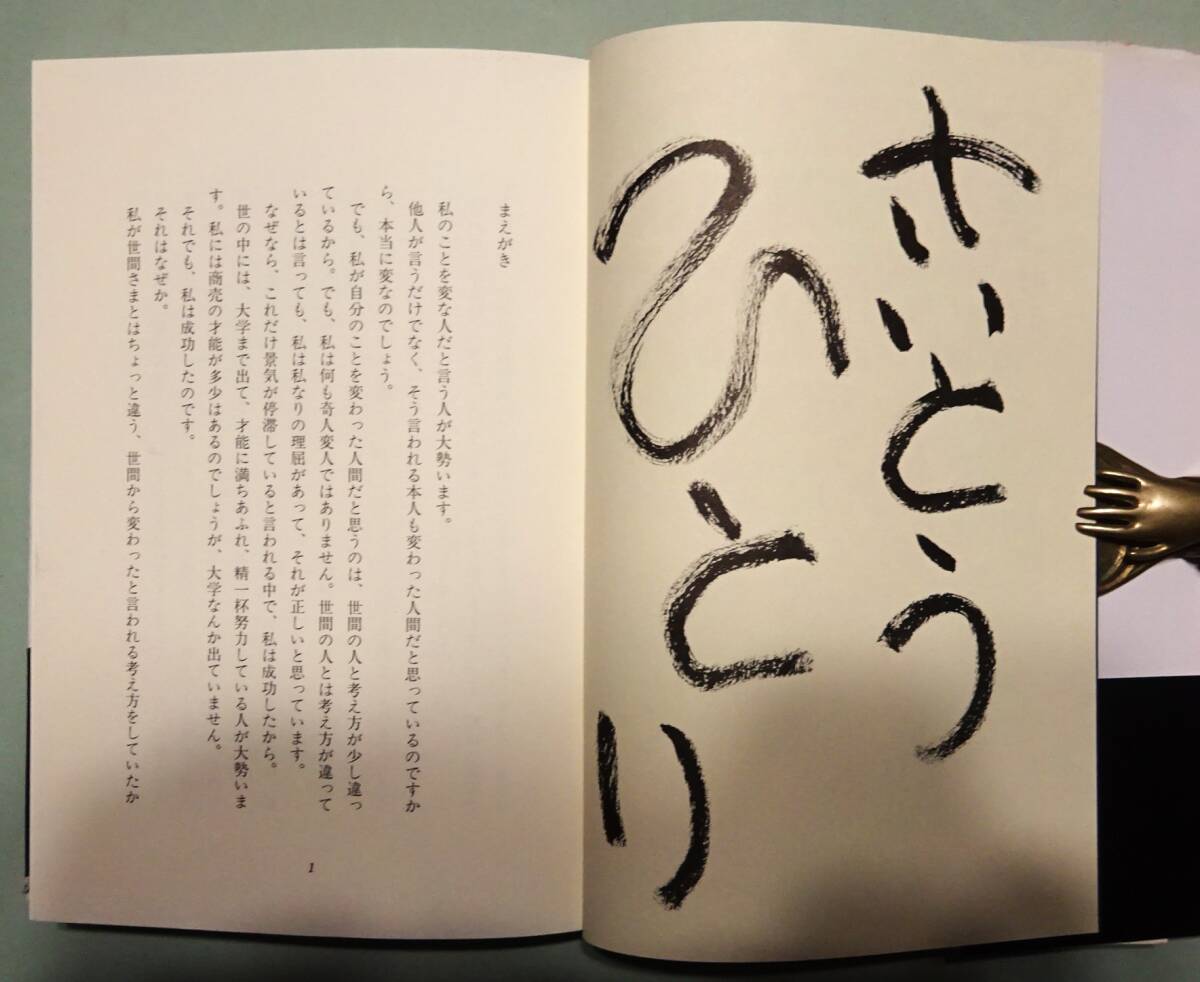 さいとう
ひとり
まえがき
私のことを変な人だと言う人が大勢います。
他人が言うだけでなく、そう言われる本人も変わった人間だと思っているのですか
ら、本当に変なのでしょう。
でも、私が自分のことを変わった人間だと思うのは、世間の人と考え方が少し違っ
ているから。でも、私は何も奇人変人ではありません。世間の人とは考え方が違って
いるとは言っても、私は私なりの理屈があって、それが正しいと思っています。
なぜなら、これだけ景気が停滞していると言われる中で、私は成功したから。
世の中には、大学まで出て、才能に満ちあふれ、精一杯努力している人が大勢いま
す。私には商売の才能が多少はあるのでしょうが、大学なんか出ていません。
それでも、私は成功したのです。
それはなぜか。
私が世間さまとはちょっと違う、世間から変わったと言われる考え方をしていたか
1